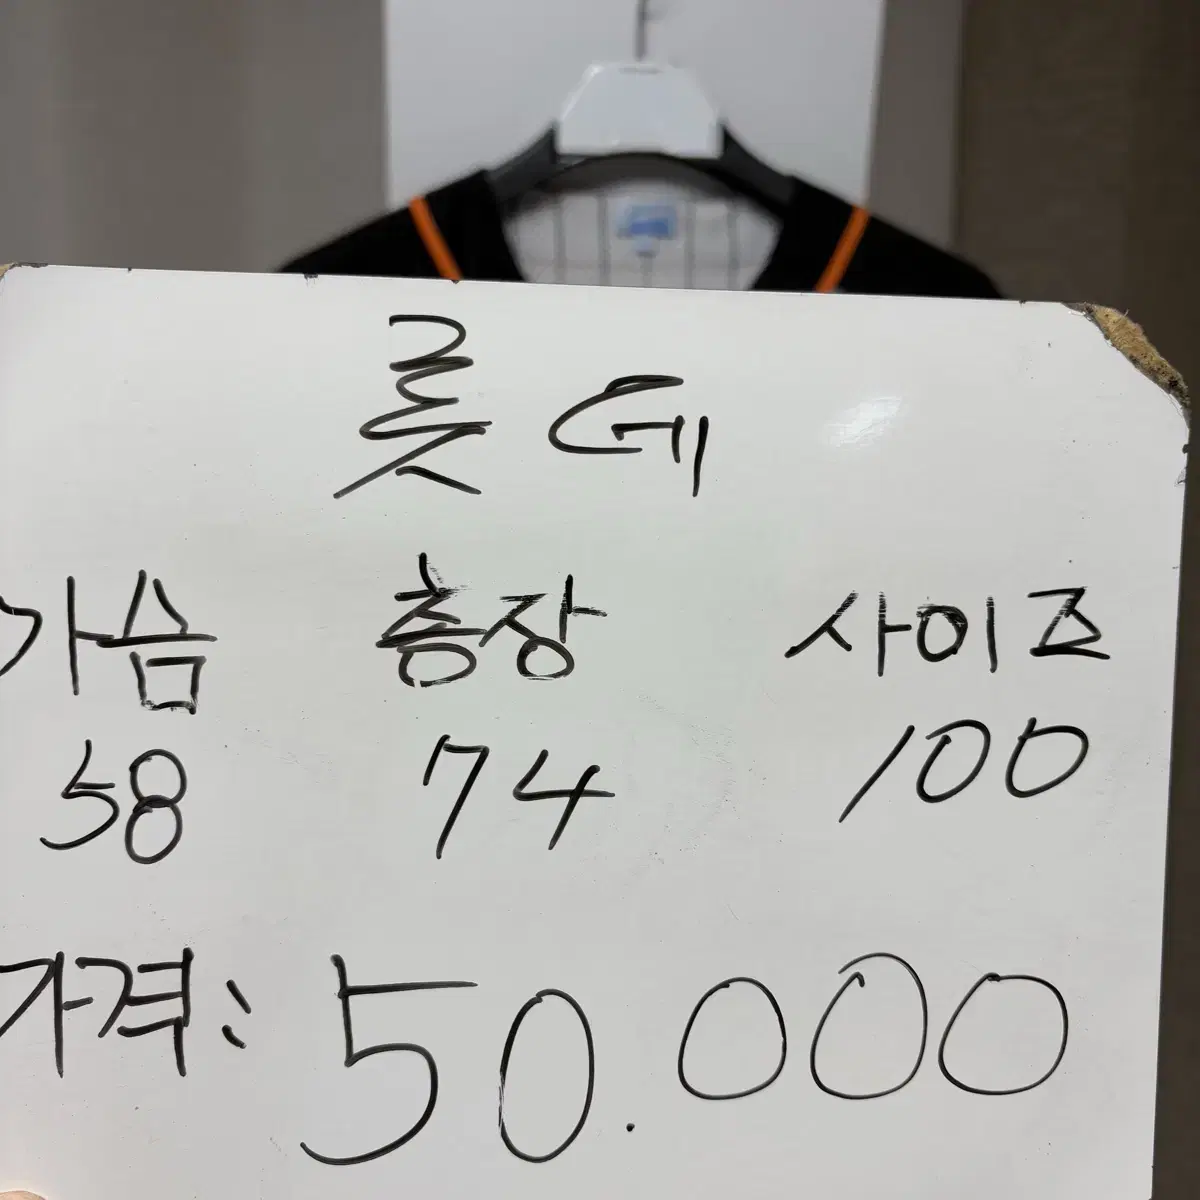 롯데
가슴 총장 사이즈
58 74 100
가격: 50.000